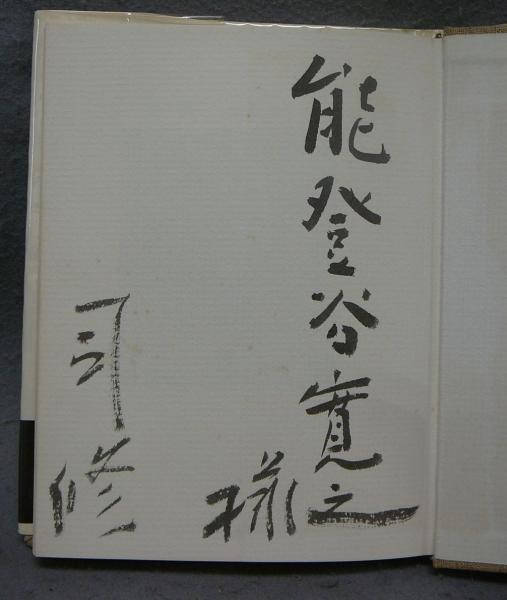 能登谷寛之
様
司修